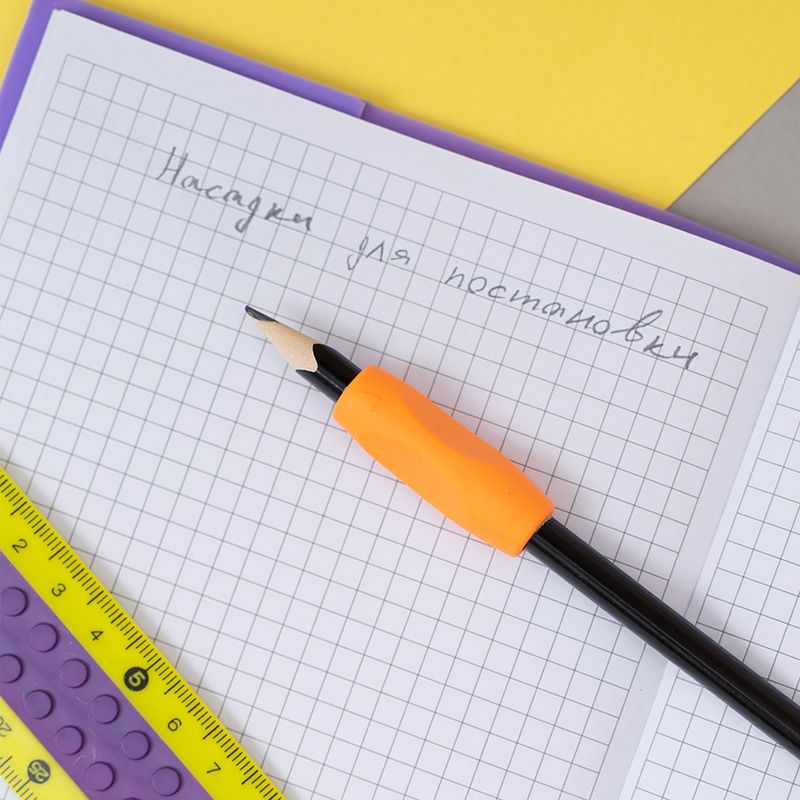 Насадки для постановки
2 3 4 5 6 7
25
20